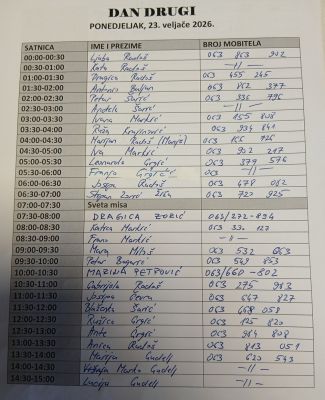 DAN DRUGI
PONEDJELJAK, 23. veljače 2026.
SATNICA IME I PREZIME BROJ MOBITELA
00:00-00:30 Ljuba Radoš 063 863 902
00:30-01:00 Kata Radoš -11-
01:00-01:30 Dragica Radoš 063 455 245
01:30-02:00 Antonio Buljan 063 862 377
02:00-02:30 Petar Šarić 063 336 796
02:30-03:00 Anđela Šarić -11-
03:00-03:30 Ivana Markić 063 155 808
03:30-04:00 Ruža Krajinović 063 934 841
04:00-04:30 Marijan Radoš 063 166 726
04:30-05:00 Iva Markić 063 902 217
05:00-05:30 Leonarda Grgić 063 379 576
05:30-06:00 Franjo Grgić -11-
06:00-06:30 Josipa Radoš 063 478 082
06:30-07:00 Stepan Zorić 063 722 925
07:00-07:30 Sveta misa
07:30-08:00 DRAGICA ZORIĆ 063/272-894
08:00-08:30 Katica Markić 063 33 127
08:30-09:00 Frano Markić -11-
09:00-09:30 Mara Miloš 063 532 063
09:30-10:00 Petar Bagarić 063 549 853
10:00-10:30 MARIJA PETROVIĆ 063/660-802
10:30-11:00 Gabrijela Radoš 063 275 983
11:00-11:30 Josipa Ćevra 063 647 827
11:30-12:00 Blaženka Šarić 063 678 058
12:00-12:30 Ružica Grgić 063 125 820
12:30-13:00 Ante Grgić 063 964 808
13:00-13:30 Anica Radoš 063 813 059
13:30-14:00 Marija Gudelj 063 620 543
14:00-14:30 Marta Gudelj -11-
14:30-15:00 Lucija Gudelj -11-